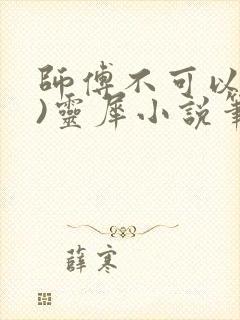 師傅不可以
)靈犀小說
薛寒